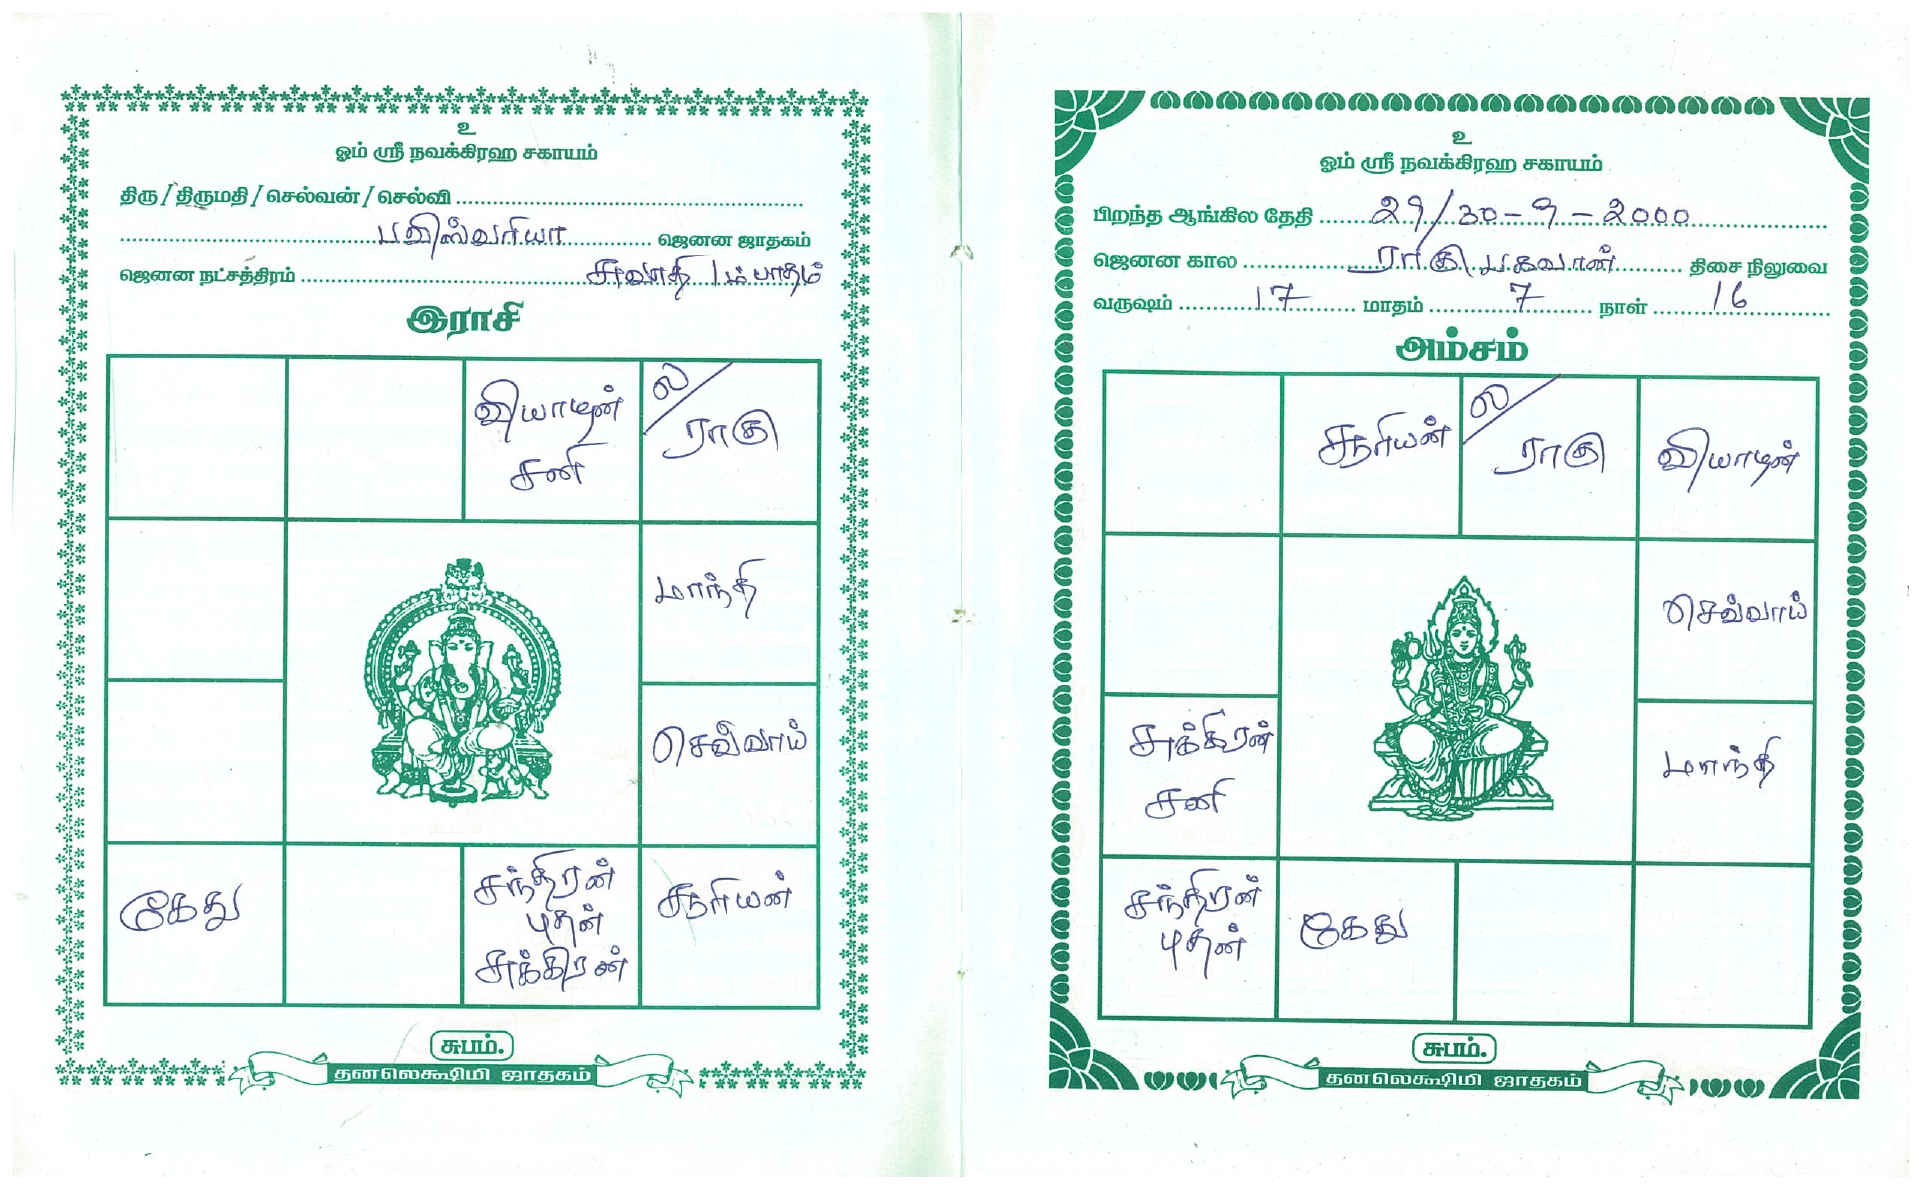 உ
ஓம் ஸ்ரீ நவக்கிரஹ சகாயம்
திரு / திருமதி / செல்வன் / செல்வி
பவிஸ்வரியா ஜெனன ஜாதகம்
ஜெனன நட்சத்திரம் சுவாதி 1ம் பாதம்
இராசி
வியாழன் ல/ ராகு
சனி
மாந்தி
செவ்வாய்
கேது சந்திரன் சூரியன்
புதன்
சுக்கிரன்
சுபம்.
தனலெக்ஷிமி ஜாதகம்
உ
ஓம் ஸ்ரீ நவக்கிரஹ சகாயம்
பிறந்த ஆங்கில தேதி 29/30-9-2000
ஜெனன கால ராகு பகவான் திசை நிலுவை
வருஷம் 17 மாதம் 7 நாள் 16
அம்சம்
சூரியன் ல/ ராகு வியாழன்
செவ்வாய்
சுக்கிரன் மாந்தி
சனி
சந்திரன் கேது
புதன்
சுபம்.
தனலெக்ஷிமி ஜாதகம்